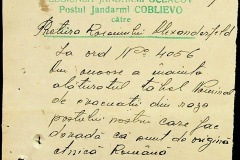 LEGIUNEA JANDARMI OCEACOV
Postul Jandarmi COBLIEVO
către
Pretura Raionului Alexanderfeld
La ord No 4056
Am onoare a înainta
alaturatul tabel nominal
de evacuatii din raza
postului nostru care fac
dovadă că sunt de origină
etnică Română